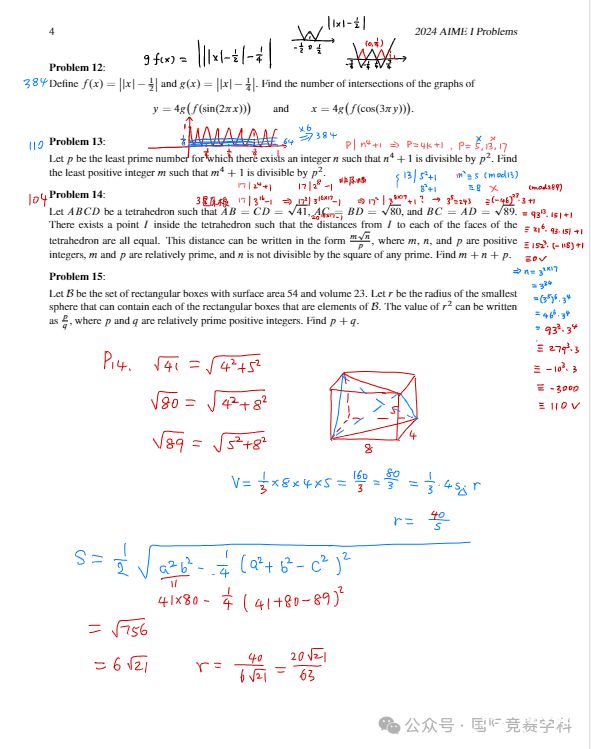 4 2024 AIME I Problems
g f(x) = |||x|-1/2|-1/4|
||x|-1/2|
-1/2 0 1/2
(0,1/4)
Problem 12:
384 Define f(x) = ||x| − 1/2| and g(x) = ||x| − 1/4|. Find the number of intersections of the graphs of
y = 4g(f(sin(2πx))) and x = 4g(f(cos(3πy))).
64 ×6 ⇒ 384
110 Problem 13:
p | n⁴+1 ⇒ p=4k+1, p=5,13,17
Let p be the least prime number for which there exists an integer n such that n⁴ + 1 is divisible by p². Find
the least positive integer m such that m⁴ + 1 is divisible by p².
13 | 5²+1
8²+1
m²≡5 (mod13)
≡8 ×
104 Problem 14:
17 | 2⁴+1
17 | 2⁸-1
17 | 3¹⁶-1
Let ABCD be a tetrahedron such that AB = CD = √41, AC = BD = √80, and BC = AD = √89.
There exists a point I inside the tetrahedron such that the distances from I to each of the faces of the
tetrahedron are all equal. This distance can be written in the form m√n/p, where m, n, and p are positive
integers, m and p are relatively prime, and n is not divisible by the square of any prime. Find m + n + p.
Problem 15:
Let B be the set of rectangular boxes with surface area 54 and volume 23. Let r be the radius of the smallest
sphere that can contain each of the rectangular boxes that are elements of B. The value of r² can be written
as p/q, where p and q are relatively prime positive integers. Find p + q.
≡ 0 ✓
= 3⁸⁴
= 93³·3⁴
≡ 279³·3
≡ -10³·3
≡ -3000
≡ 110 ✓
P14. √41 = √4²+5²
√80 = √4²+8²
√89 = √5²+8²
5
4
8
V = 1/3 × 8 × 4 × 5 = 160/3 = 80/3 = 1/3 · 4S△ r
r = 40/S
S = 1/2 √a²b² - 1/4 (a²+b²-c²)²
11
41×80 - 1/4 (41+80-89)²
= √756
= 6√21 r = 40/6√21 = 20√21/63
公众号
竞赛学科